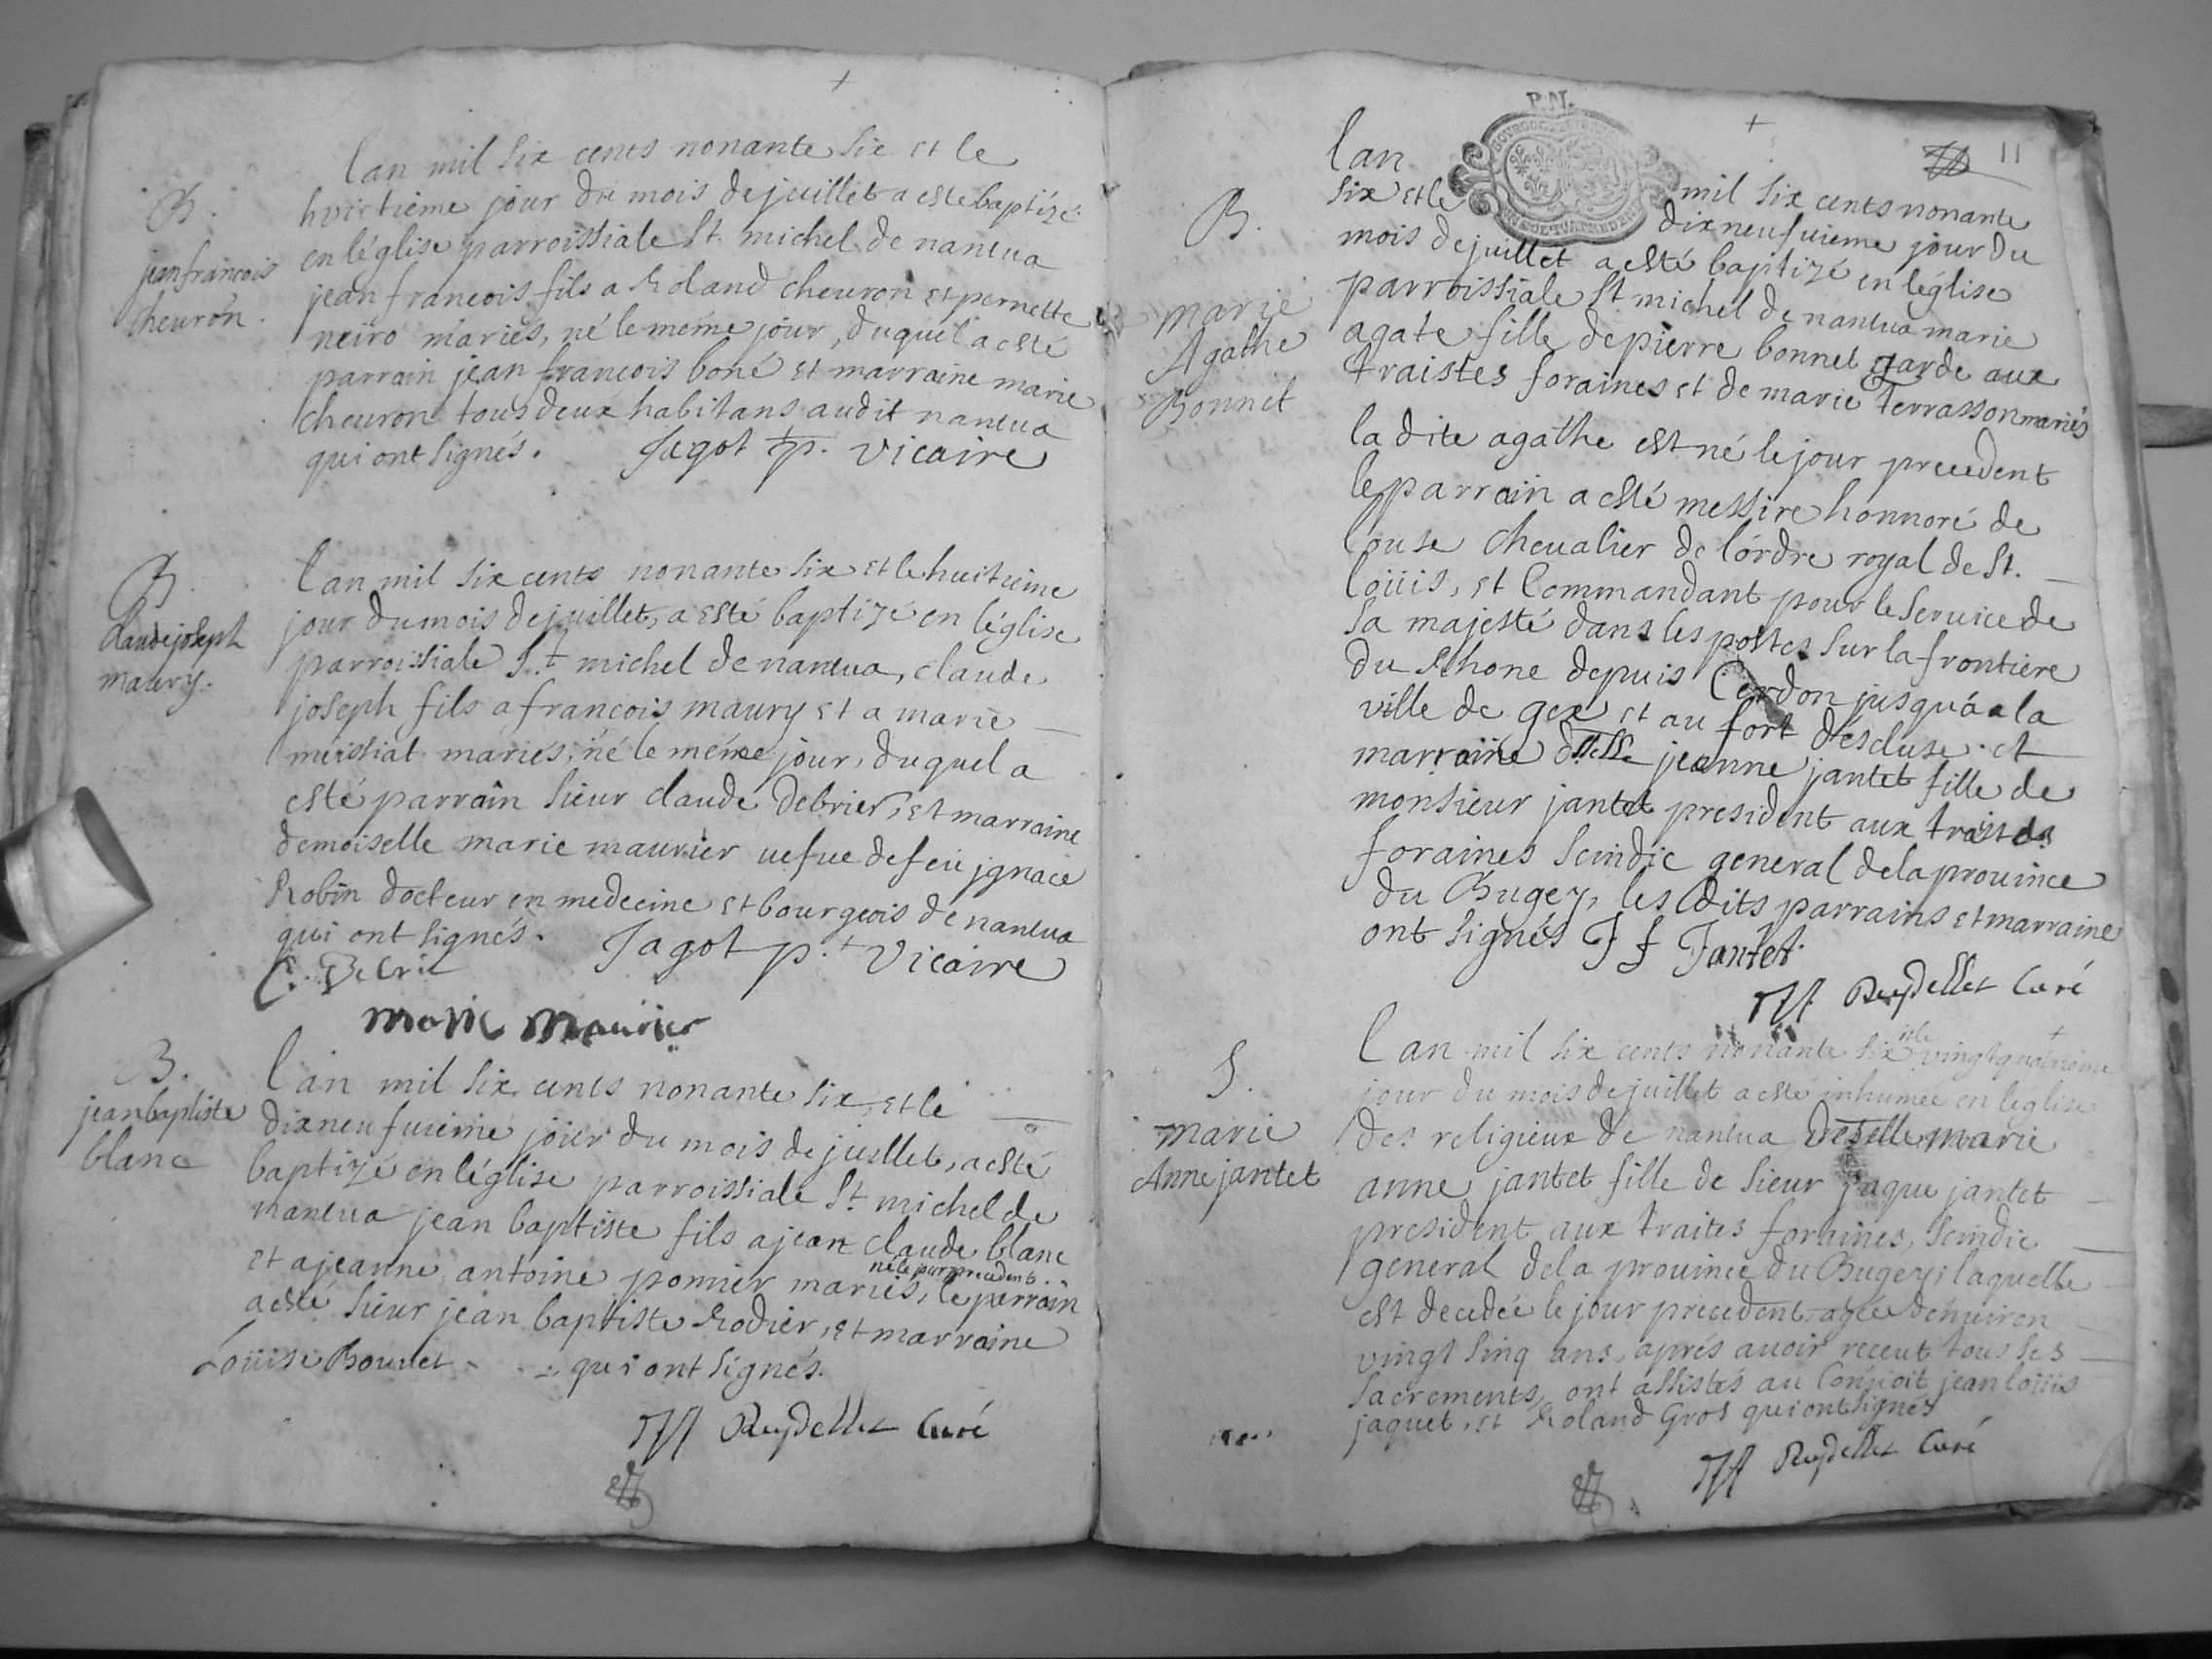 B.
jean francois
cheuron.
lan mil six cents nonante six et le
huictieme jour du mois de juillet a este baptizé
en léglise parroissiale St. michel de nantua
jean francois fils a Roland cheuron et pernette
neiro mariés, né le meme jour, duquel a esté
parrain jean francois boné et marraine marie
cheuron tous deux habitans audit nantua
qui ont signés. Jagot p. vicaire
B.
claude joseph
maury.
lan mil six cents nonante six et le huitieme
jour du mois de juillet, a esté baptizé en léglise
parroissiale St michel de nantua, claude
joseph fils a francois maury et a marie
mussiat mariés, né le méme jour, duquel a
esté parrain sieur claude Debrier, et marraine
demoiselle marie maurier uefue de feu jgnace
Robin docteur en medecine et bourgeois de nantua
qui ont signés. Jagot p.t Vicaire
marie maurier
B.
jean baptiste
blanc
Lan mil six cents nonante six, et le
dixneufuieme jour du mois de juillet, a esté
baptizé en léglise parroissiale St. michel de
nantua jean baptiste fils a jean claude blanc
né le jour precedent
et a jeanne antoine pomier mariés, le parrain
a esté sieur jean baptiste Rodier, et marraine
Loüise Bouuet qui ont signés.
Reydellet Curé
P.N.
11
B.
marie
Agathe
Bonnet
lan mil six cents nonante
six et le dixneufuieme jour du
mois de juillet a esté baptizé en léglise
parroissiale St michel de nantua marie
agate fille de pierre bonnet garde aux
traistes foraines et de marie Terrasson mariés
la dite agathe est né le jour precedent
le parrain a esté messire honnoré de
louse cheualier de lórdre royal de St.
loüis, et Commandant pour le seruice de
sa majesté dans les postes sur la frontiere
du Rhone depuis Cerdon jusquá a la
ville de gex et au fort déscluse. et
marraine d.lle jeanne jantet fille de
monsieur jantet president aux traites
foraines scindic general de la prouince
du Bugey, les dits parrains et marraine
ont signés J f Jantet.
Reydellet Curé
S.
marie
Anne jantet
Lan mil six cents nonante six et le vingt quatrieme
jour du mois de juillet a esté inhumée en leglise
des religieux de nantua Deselle marie
anne jantet fille de sieur jaque jantet
president aux traites foraines, scindic
general de la prouince du Bugey, laquelle
est decedée le jour precedent agée dénuiron
vingt sinq ans, aprés auoir receut tous ses
sacrements, ont assistés au Conuoit jean loüis
jaquet, et Roland Gros qui ont signés
Reydellet Curé